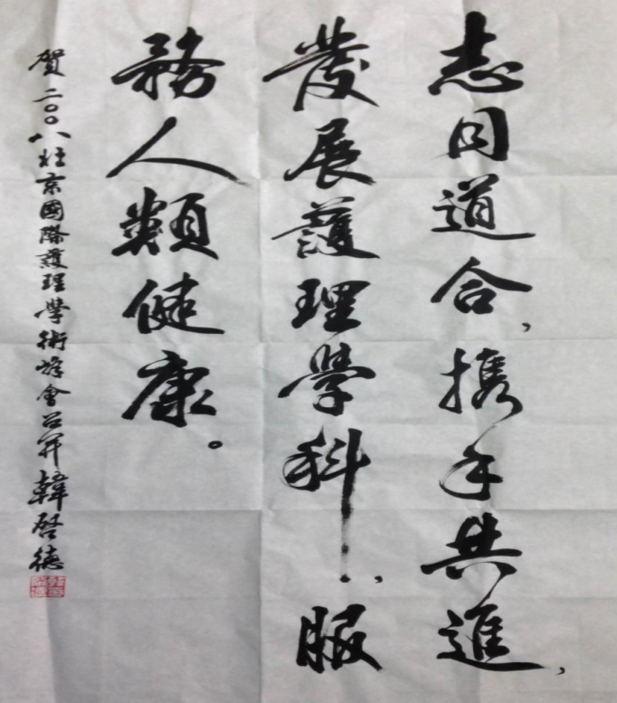 志同道合，携手共進，
發展護理學科，服
務人類健康。
賀二〇〇八北京國際護理學術峰會召開 韓啓德